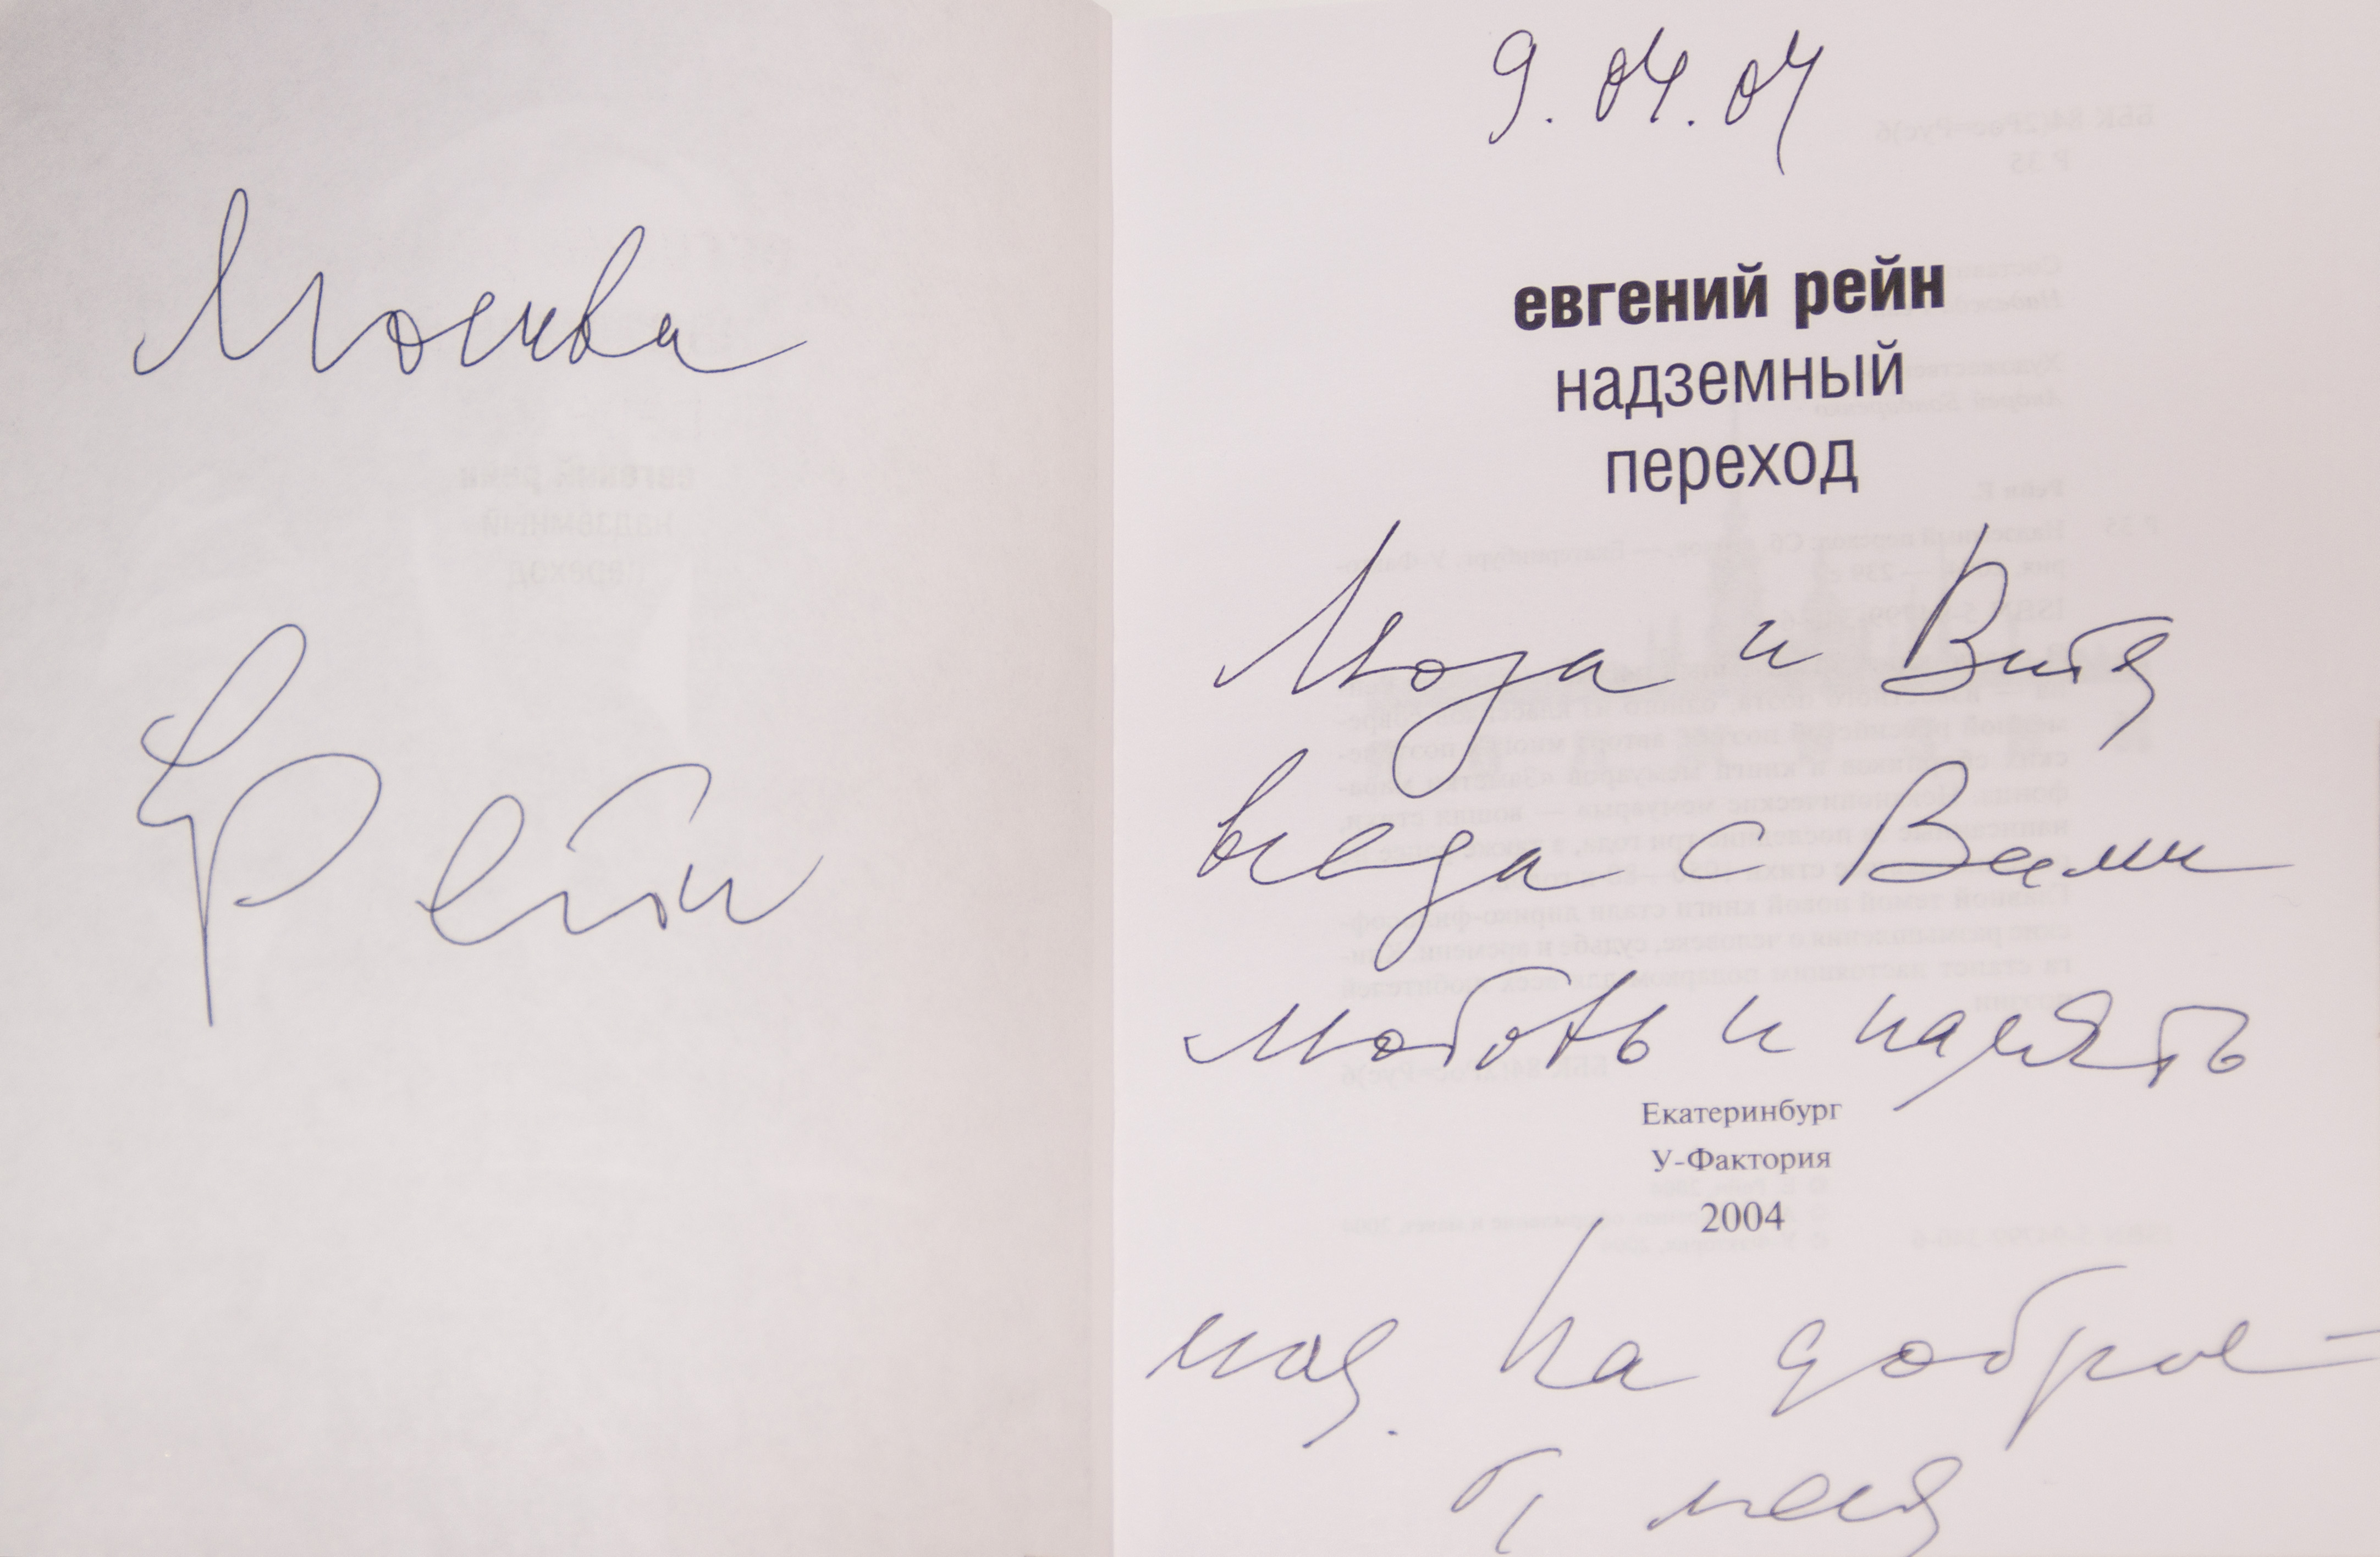 Москва
Рейн
9.04.04
евгений рейн
надземный
переход
Люда и Витя
всегда с Вами
любовь и память
Екатеринбург
У-Фактория
2004
моя. На доброе
меня